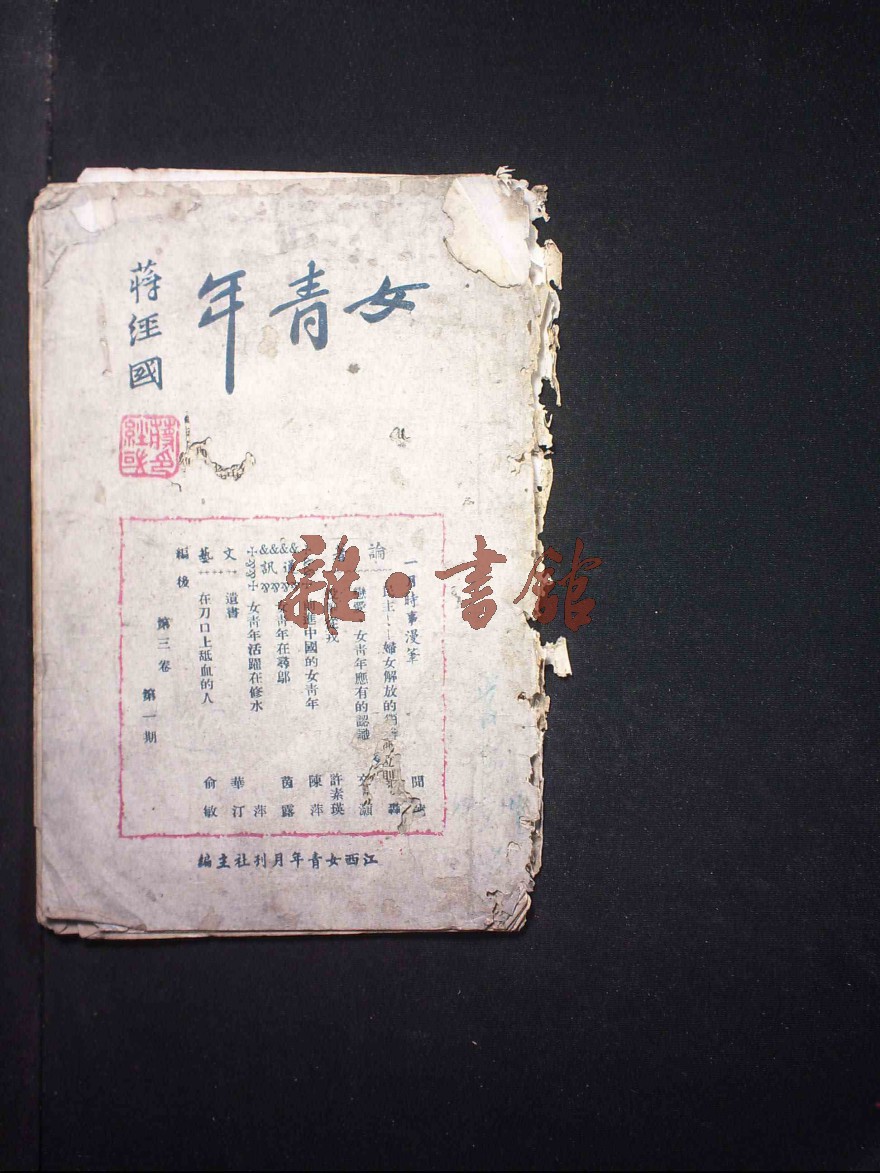 女青年
蔣經國
蔣經國印
雜·書館
一月時事漫筆 聞
論
主……婦女解放的
女青年應有的認識
許素瑛
中國的女青年 陳萍
通訊
青年在尋鄔 茵露
女青年活躍在修水 萍
文藝
遺書 華汀
在刀口上舐血的人 俞敏
編後
第三卷 第一期
江西女青年月刊社主編